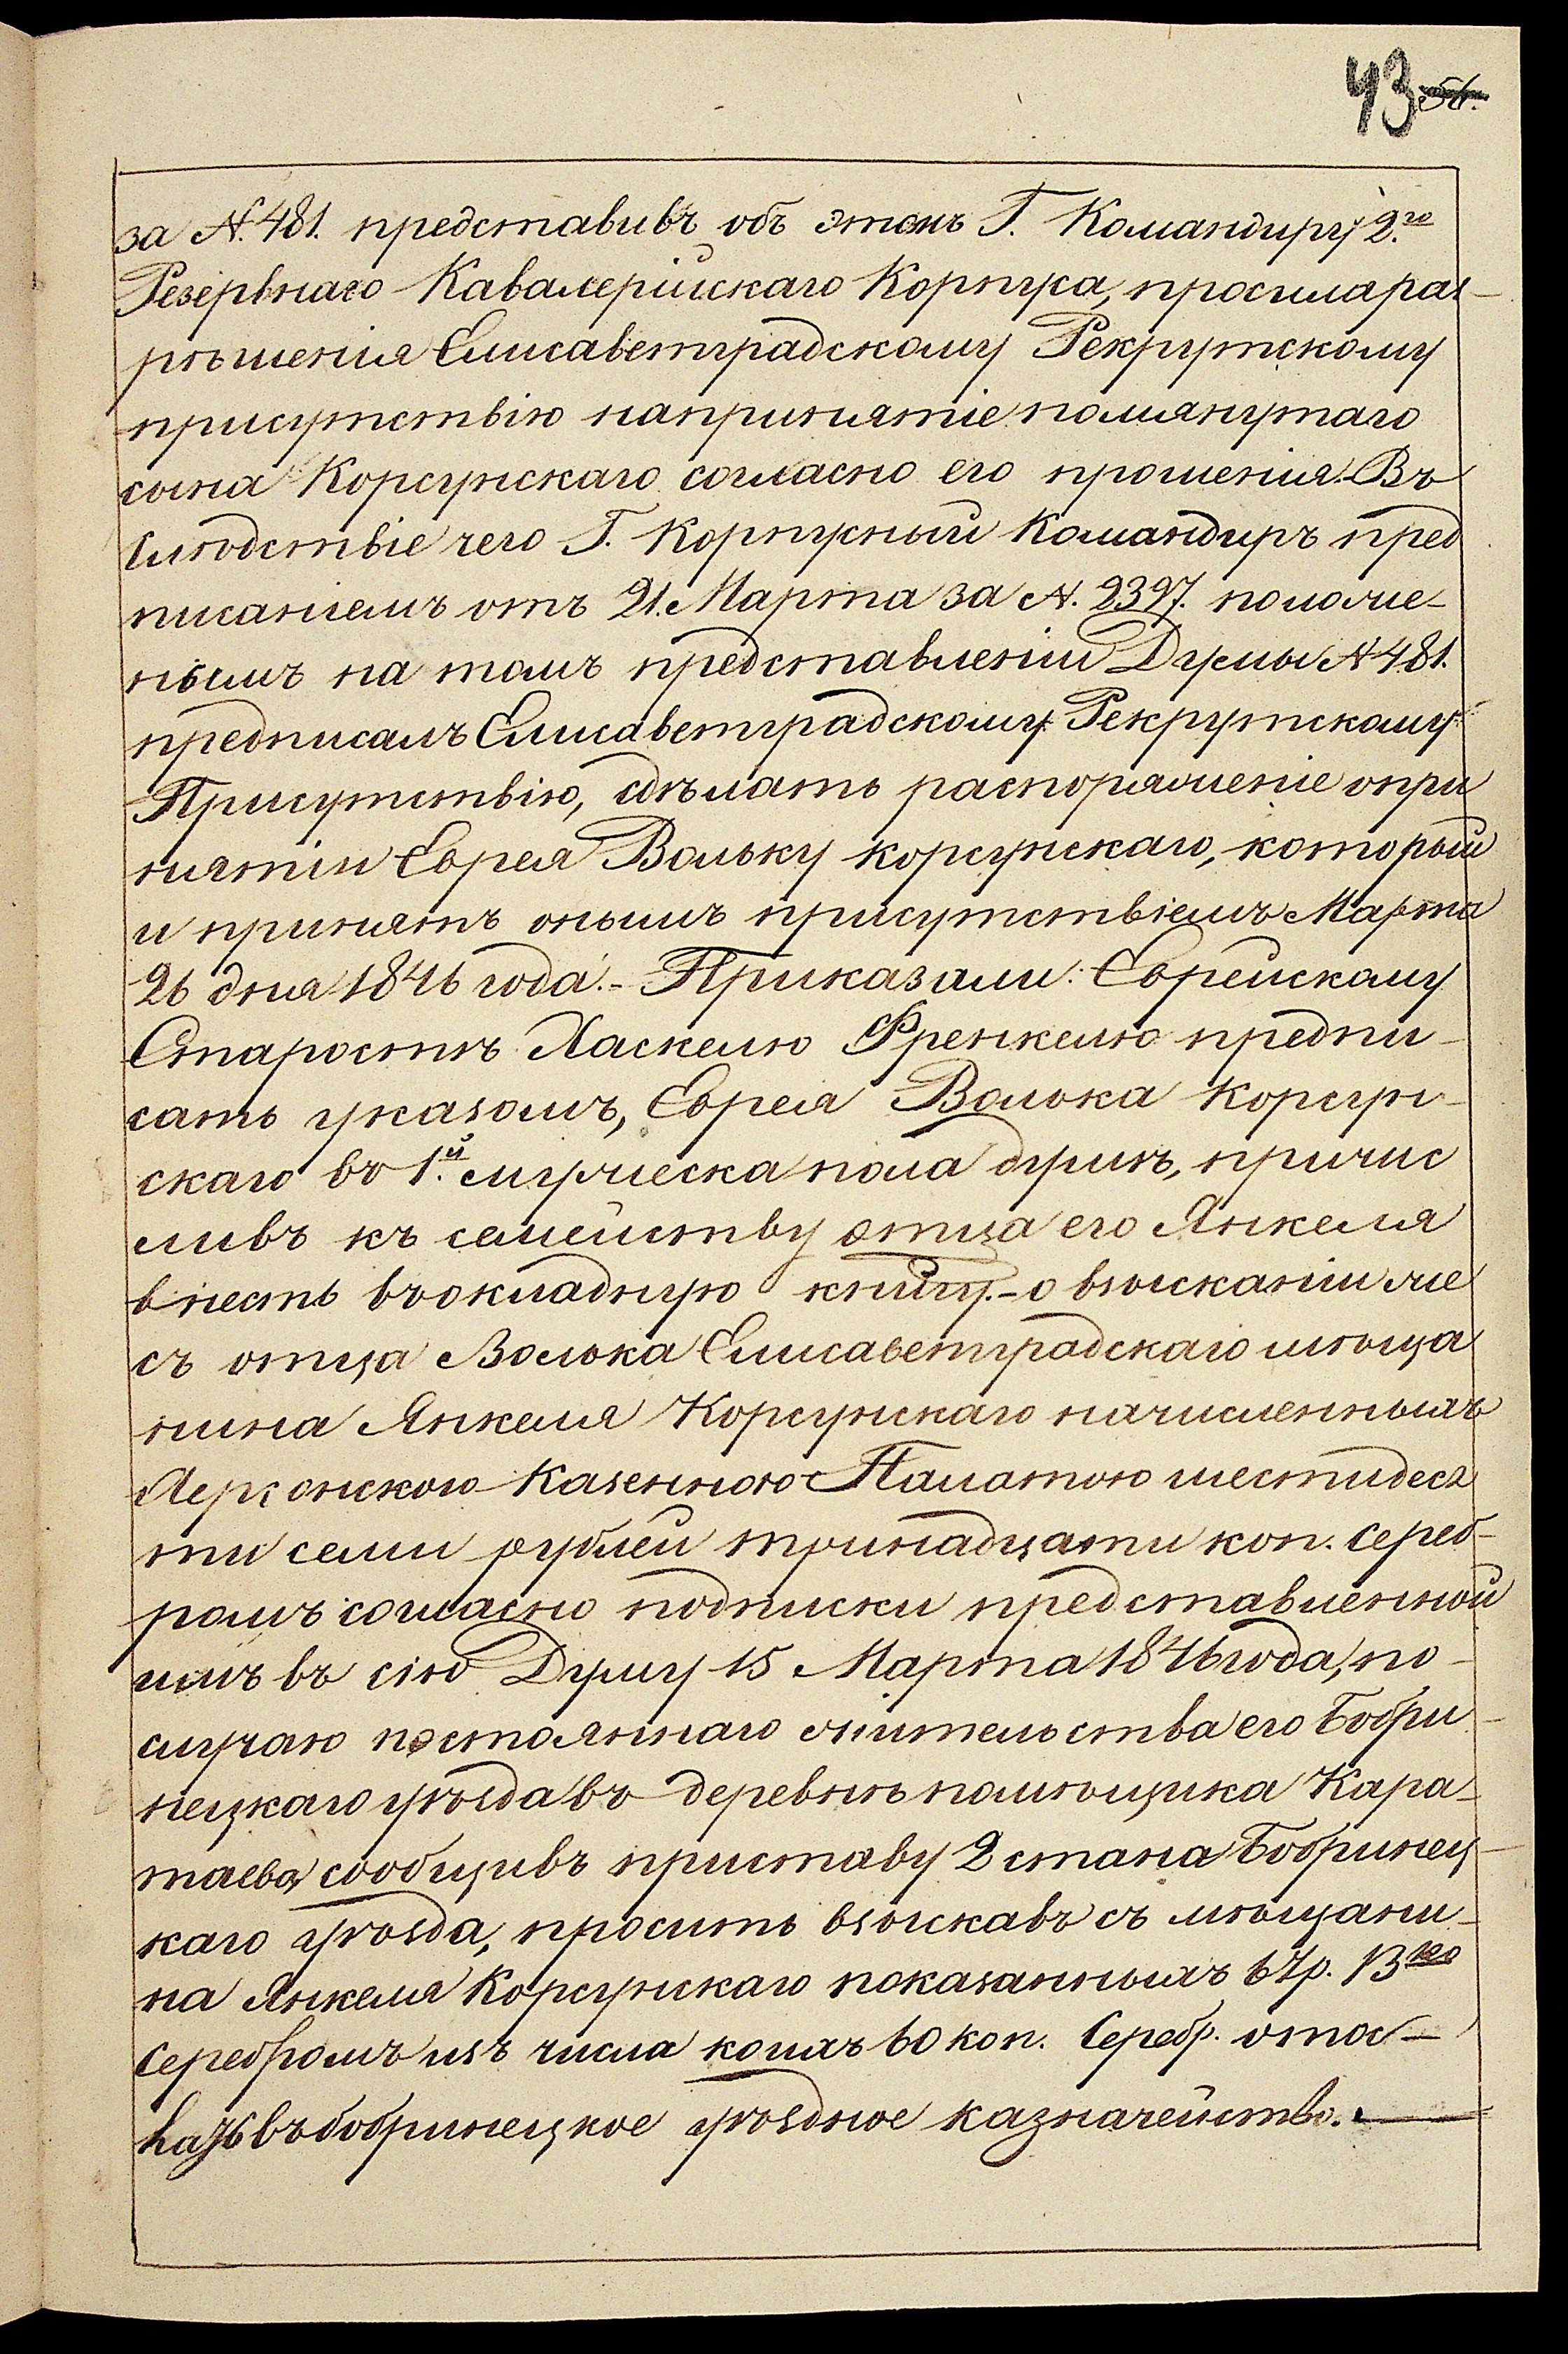 43 54.
за №. 481. представивъ объ этомъ Г. Командиру 2.го
Резервнаго Кавалерійскаго Корпуса, просила раз-
рѣшенія Елисаветградскому Рекрутскому
присутствію на принятіе помянутаго
сына Корсунскаго согласно его прошенія. Въ
слѣдствіе чего Г. Корпусный Командиръ пред
писаніемъ отъ 21. Марта за №. 2397. положе-
нымъ на томъ представленіи Думы № 481.
предписалъ Елисаветградскому Рекрутскому
Присутствію, сдѣлать распоряженіе о при
нятіи Еврея Вольку Корсунскаго, который
и принятъ онымъ присутствіемъ Марта
26 дня 1846 года. - Приказали: Еврейскому
Старостѣ Хаскелю Френкелю предпи-
сать указомъ, Еврея Волька Корсун-
скаго въ 1.й мужеска пола душѣ, причис
ливъ къ семейству отца его Янкеля
внесть въ окладную книгу. - о взысканіи же
съ отца Волька Елисаветградскаго мѣща
нина Янкеля Корсунскаго начисленныхъ
Херсонскою Казенною Палатою шестидеся
ти семи рублей тринадцати коп. сереб-
ромъ согласно подписки представленной
имъ въ сію Думу 15 Марта 1846 года, по-
случаю постояннаго жительства его Бобри-
нецкаго уѣзда въ деревнѣ помѣщика Кара-
таева, сообщивъ приставу 2 стана Бобринец-
каго уѣзда, просить взыскавъ съ мѣщани-
на Янкеля Корсунскаго показанныхъ 67 р. 13 ко
серебромъ изъ числа коихъ 60 коп. серебр. отос-
лать въ бобринецкое уѣздное казначейство.